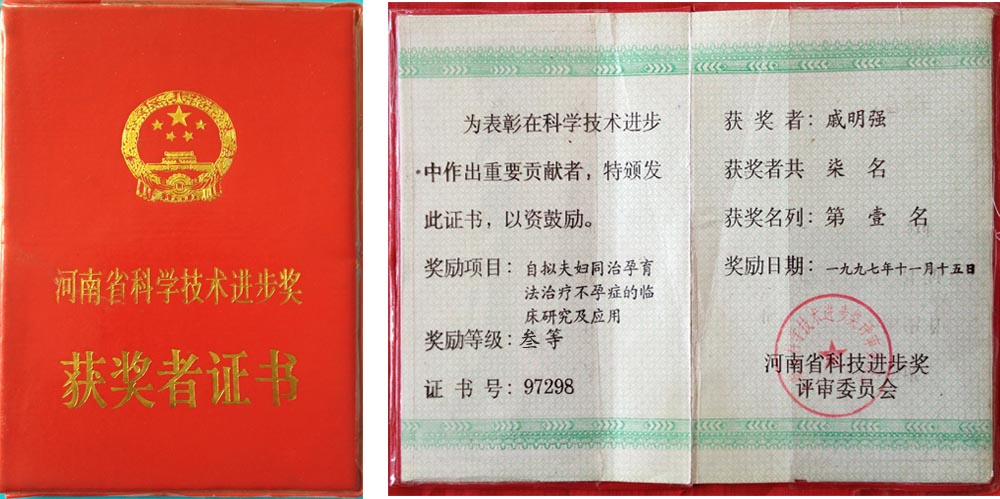 河南省科学技术进步奖
获奖者证书
为表彰在科学技术进步
中作出重要贡献者，特颁发
此证书，以资鼓励。
奖励项目：自拟夫妇同治孕育
法治疗不孕症的临
床研究及应用
奖励等级：叁等
证书号：97298
获奖者：戚明强
获奖者共 柒 名
获奖名列：第 壹 名
奖励日期：一九九七年十一月十五日
河南省科技进步奖
评审委员会